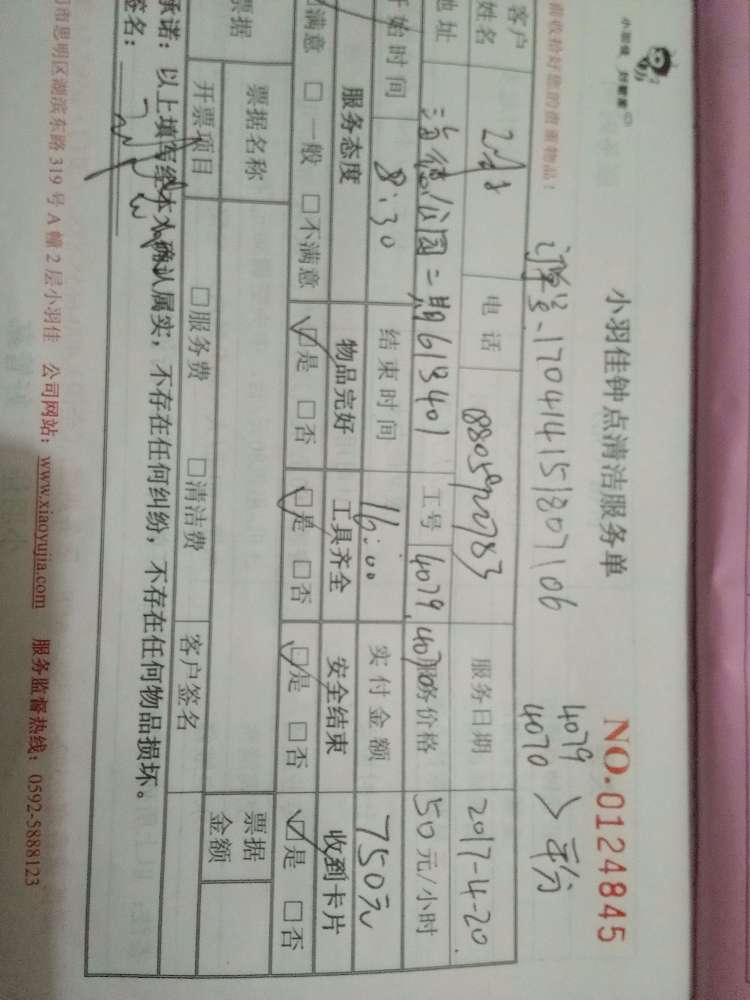 小羽佳 好管家
小羽佳钟点清洁服务单 NO.0124845
前收拾好您的贵重物品！
170414151807106 4079 平分
4070
客户姓名 电话 服务日期 2017-4-20
地址 公园二期613401 工号 4079.4070 服务价格 50元/小时
开始时间 8:30 结束时间 16:00 实付金额 750元
服务态度 物品完好 工具齐全 安全结束 收到卡片
☑满意 □一般 □不满意 ☑是 □否 ☑是 □否 ☑是 □否 ☑是 □否
票据 票据名称 票据金额
开票项目 □服务费 □清洁费 客户签名
承诺：以上填写经本人确认属实，不存在任何纠纷，不存在任何物品损坏。
签名：
市思明区湖滨东路319号A幢2层小羽佳 公司网站：www.xiaoyujia.com 服务监督热线：0592-5888123